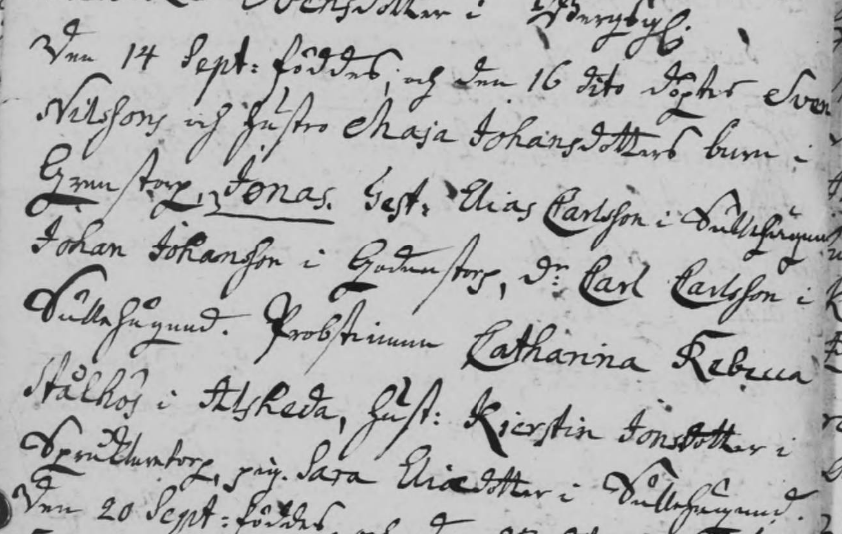 Svensdotter i Bergsgl:
Den 14 Sept: föddes, och den 16 dito döptes Sven
Nilssons och hustro Maja Johansdotters barn i
Grenstorp, Jonas. Test: Elias Carlsson i Sällehägnad
Johan Johansson i Godenstorp, dr: Carl Carlsson i
Sällehägnad. Probstinnan Catharina Rebecca
Stålhös i Alsheda, hust: Kierstin Jonsdotter i
Spruxlumtorp, pig. Sara Eliædotter i Sällehägnad.
Den 20 Sept: föddes och